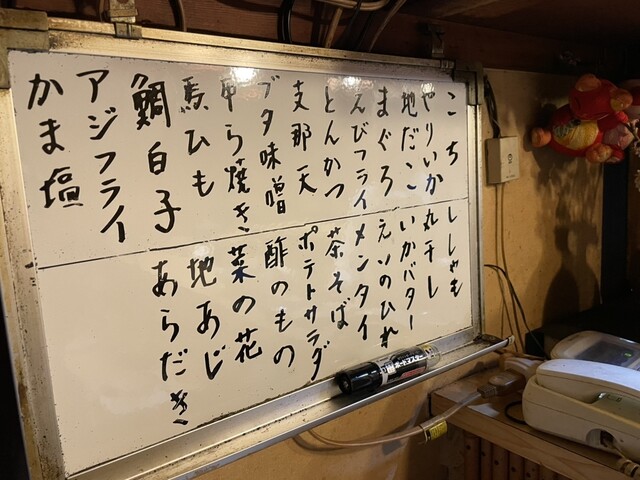 こち
やりいか
地だこ
まぐろ
えびフライ
とんかつ
支那天
ブタ味噌
甲ら焼き
馬ひも
鯛白子
アジフライ
かま塩
ししゃも
丸干し
いかバター
えいのひれ
メンタイ
茶そば
ポテトサラダ
酢のもの
菜の花
地あじ
あらだき
ボードマスター